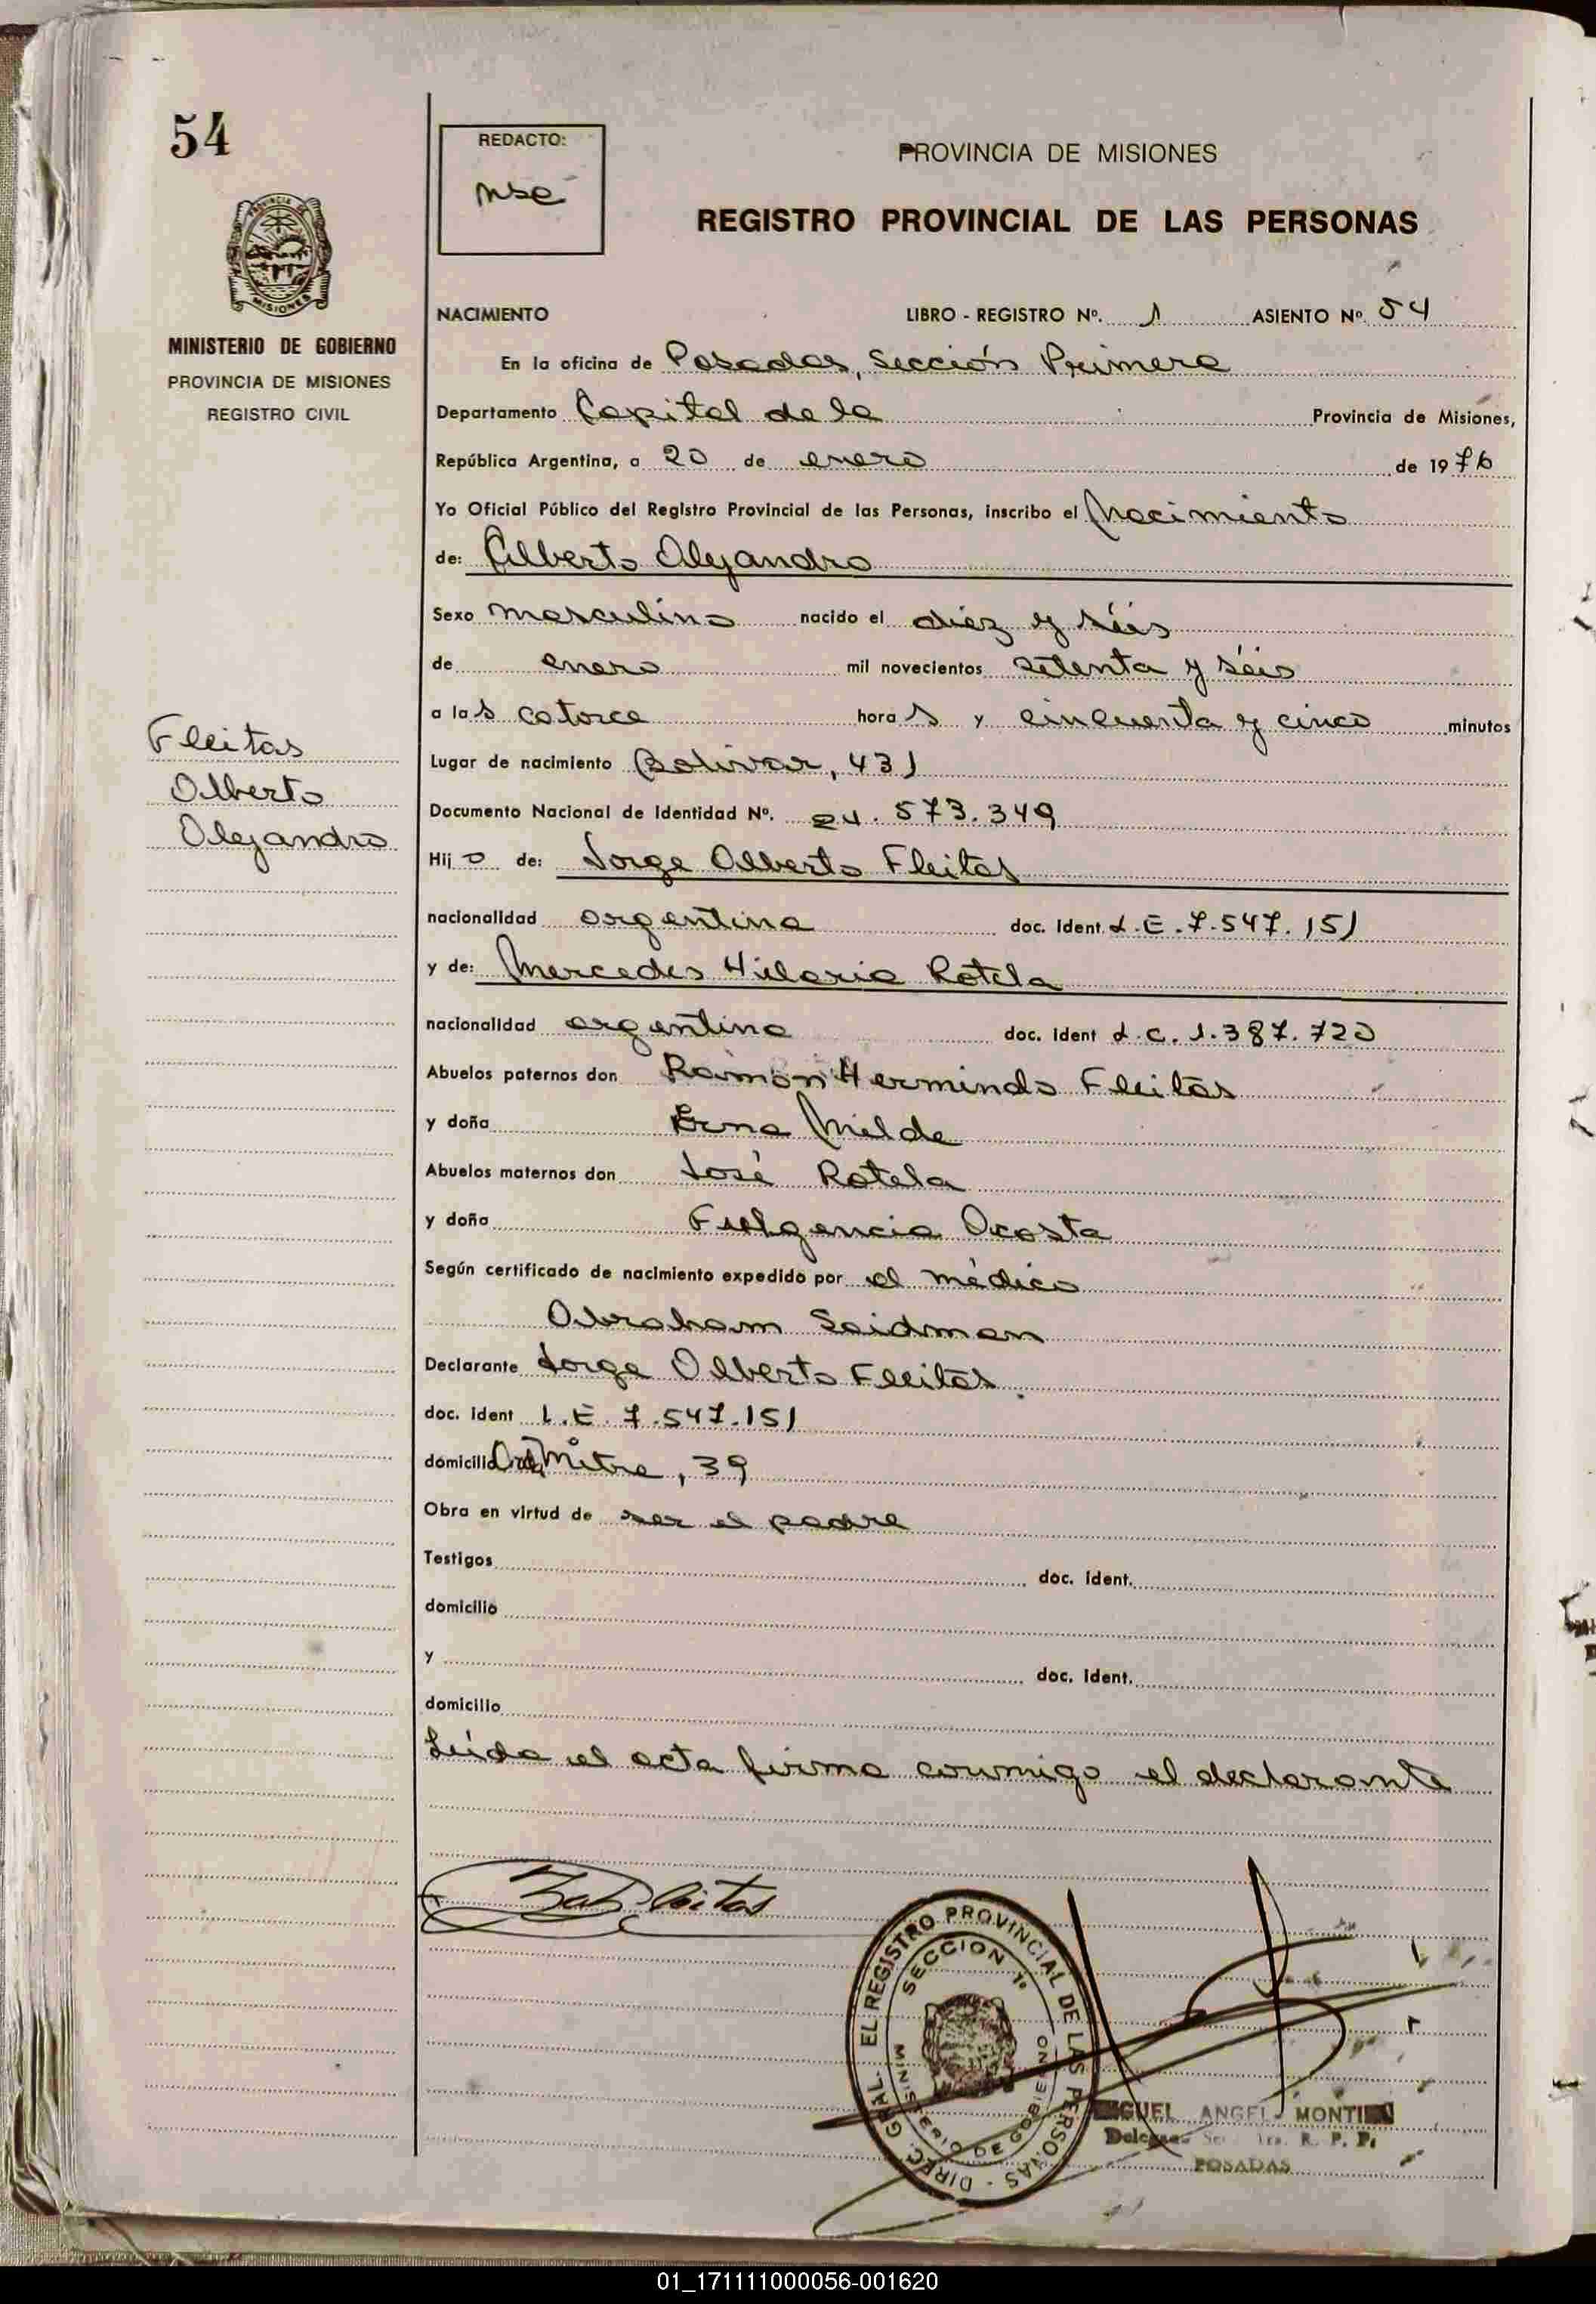 54
REDACTO:
mse
PROVINCIA DE MISIONES
REGISTRO PROVINCIAL DE LAS PERSONAS
PROVINCIA DE
MISIONES
MINISTERIO DE GOBIERNO
PROVINCIA DE MISIONES
REGISTRO CIVIL
NACIMIENTO LIBRO - REGISTRO Nº. 1 ASIENTO Nº. 54
En la oficina de Posadas, Sección Primera
Departamento Capital de la Provincia de Misiones,
República Argentina, a 20 de enero de 1976
Yo Oficial Público del Registro Provincial de las Personas, inscribo el Nacimiento
de: Alberto Alejandro
Sexo masculino nacido el diez y séis
de enero mil novecientos setenta y séis
a las catorce horas y cincuenta y cinco minutos
Fleitas
Alberto
Alejandro
Lugar de nacimiento Bolivar, 431
Documento Nacional de Identidad Nº. 24.573.349
Hijo de: Jorge Alberto Fleitas
nacionalidad argentina doc. ident. L.E. 7.547.151
y de: Mercedes Hilaria Rotela
nacionalidad argentina doc. ident L.C. 1.387.720
Abuelos paternos don Ramón Hermindo Fleitas
y doña Erna Milde
Abuelos maternos don José Rotela
y doña Fulgencia Acosta
Según certificado de nacimiento expedido por el médico
Abraham Saidman
Declarante Jorge Alberto Fleitas.
doc. ident L.E. 7.547.151
domicilio Mitre, 39
Obra en virtud de ser el padre
Testigos doc. ident.
domicilio
y doc. ident.
domicilio
Leída el acta firma conmigo el declarante
DIREC. GRAL. EL REGISTRO PROVINCIAL DE LAS PERSONAS -
SECCION 1ª
MINISTERIO DE GOBIERNO
MIGUEL ANGEL MONTI
R. P. P.
POSADAS
01_171111000056-001620